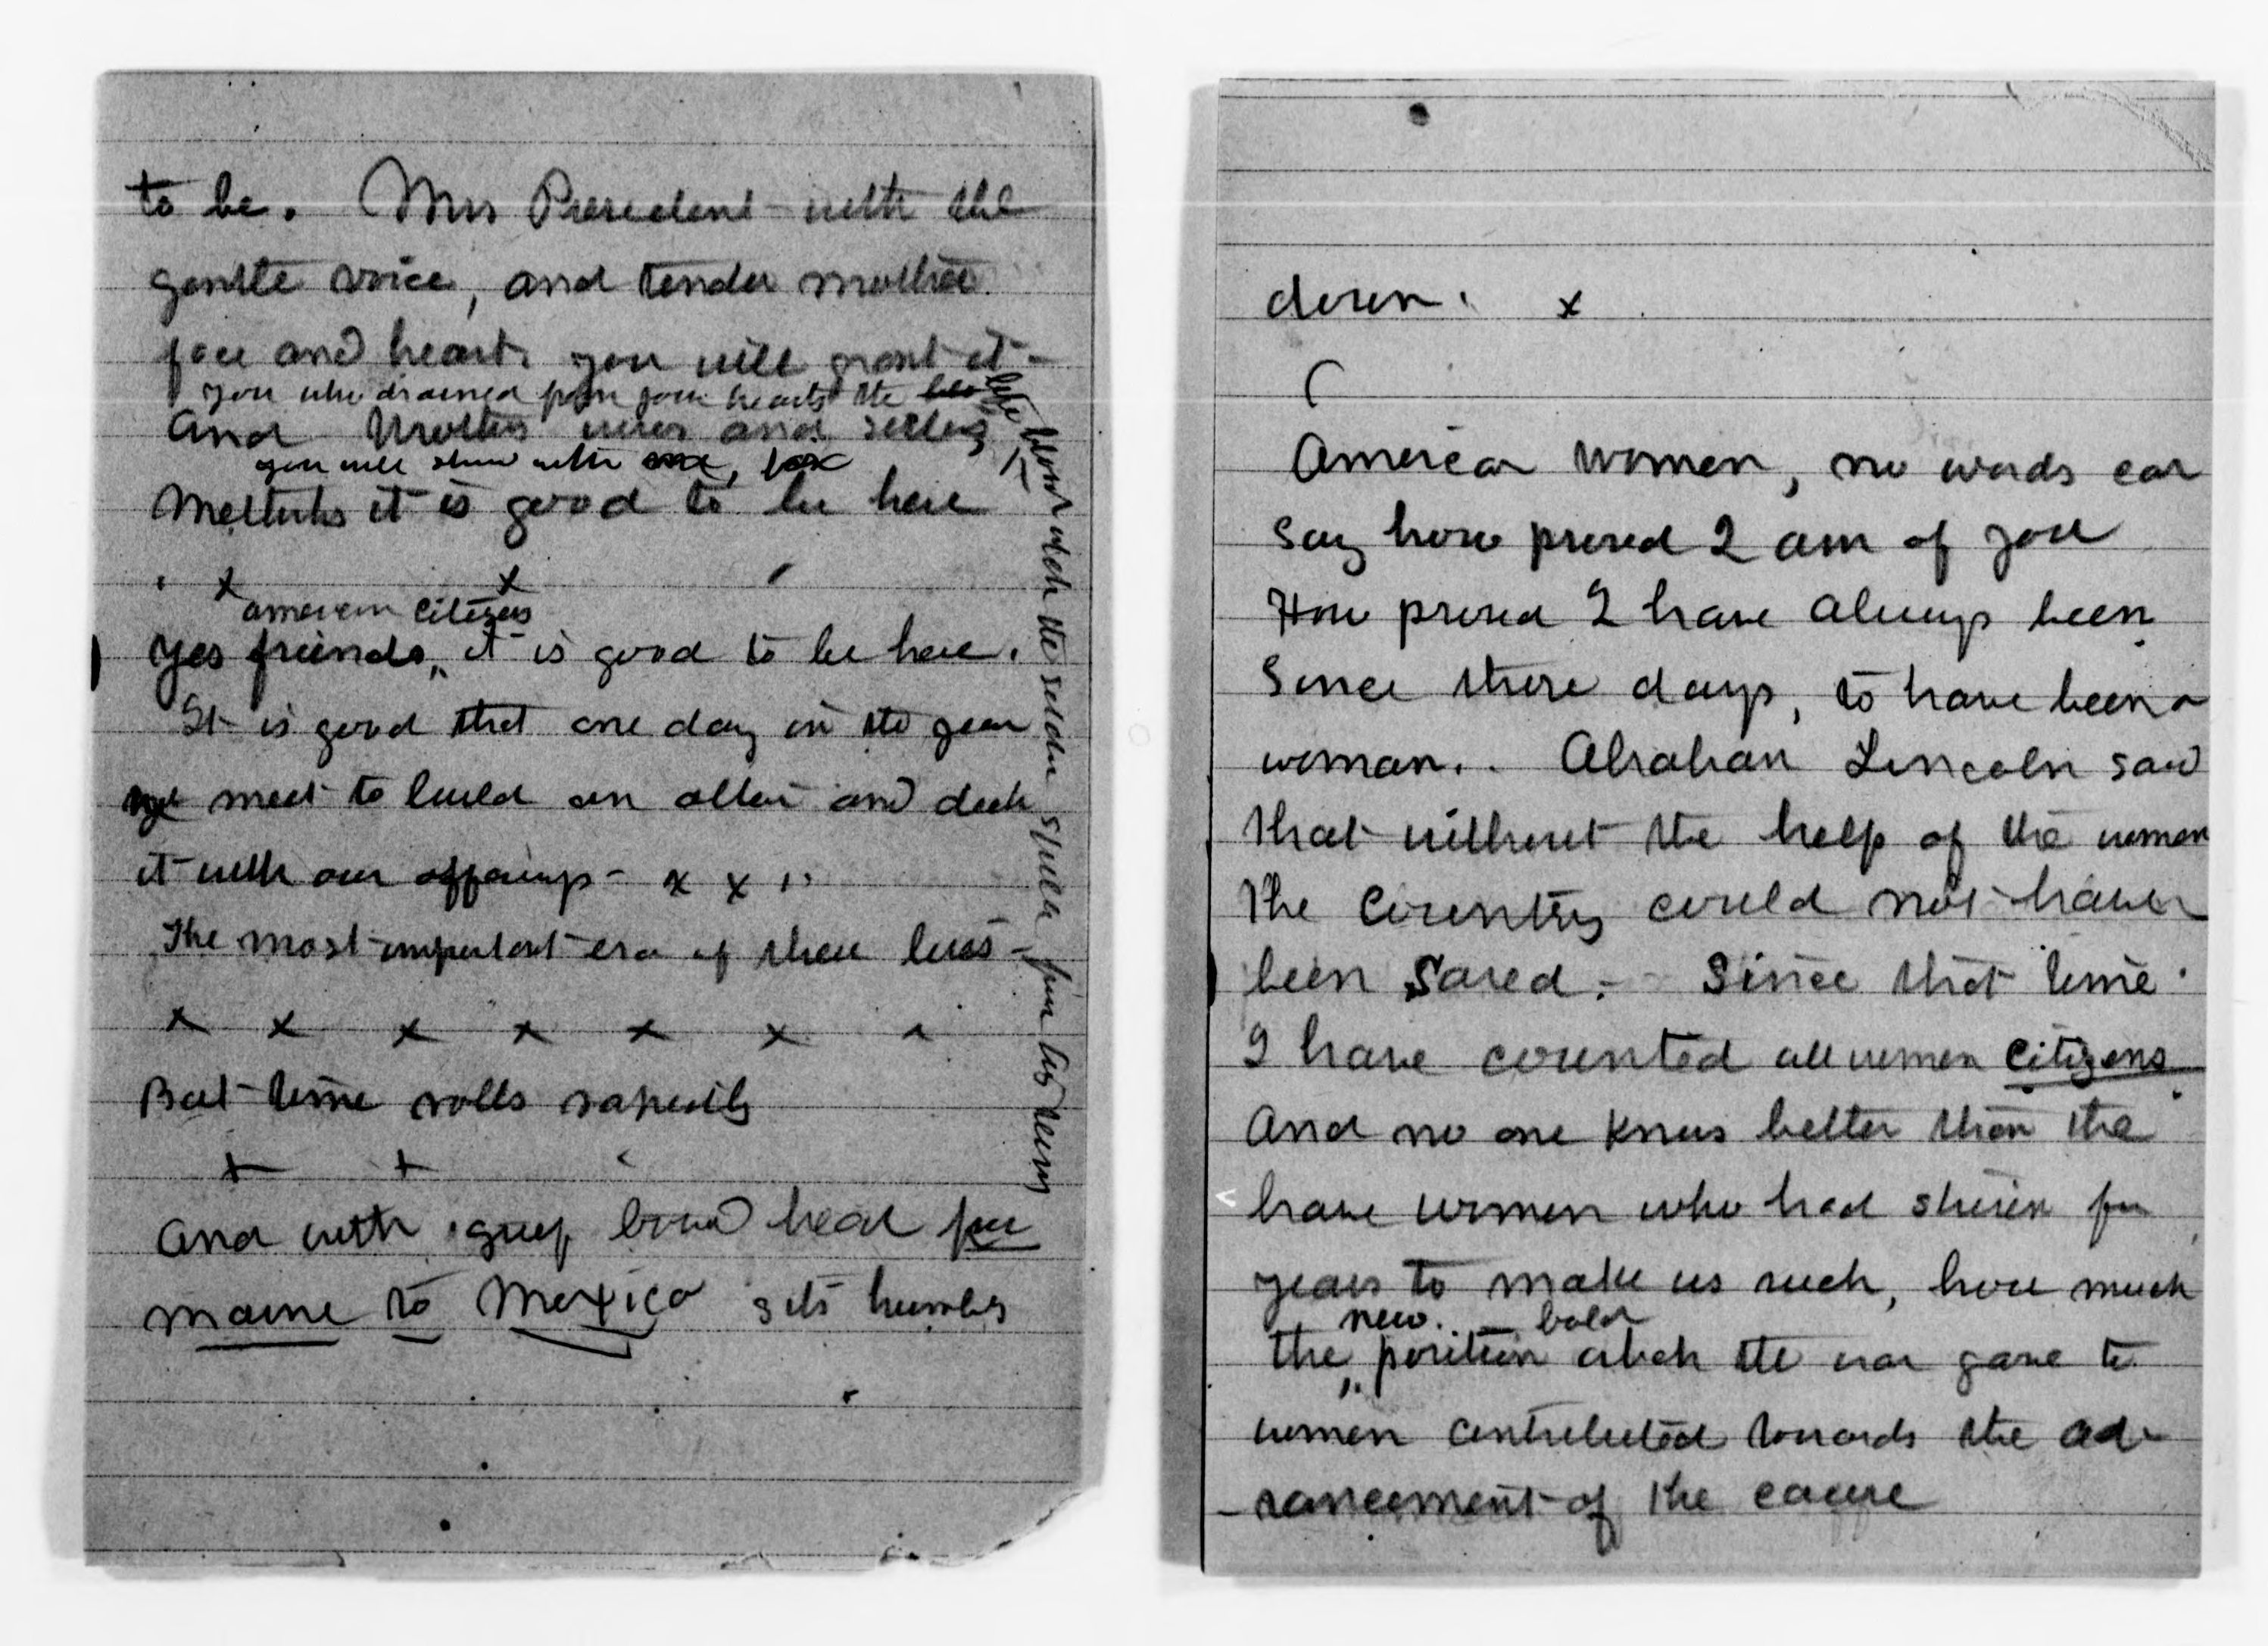 to be. Mrs President with the
gentle voice, and tender mother
face and heart, you will grant it -
you who drained from your hearts the
And Mothers wives and sisters
you will show with
Methinks it is good to be here
x x
American Citizens
Yes friends, it is good to be here.
It is good that one day in the year
we meet to build an altar and deck
it with our offerings - x x
The most important era of their lives -
x x x x x x
But time rolls rapidly
x x
And with grief bowed head from
Maine to Mexico sits humbly
blood which the soldier spilled from his veins
down. x
(
American women, no words can
say how proud I am of you
How proud I have always been
Since those days, to have been a
woman. Abraham Lincoln said
that without the help of the women
the Country could not have
been saved. - Since that time
I have counted all women citizens
And no one knows better than the
brave women who had striven for
years to make us such, how much
new bold
the position which the war gave to
women contributed towards the ad-
vancement of the cause